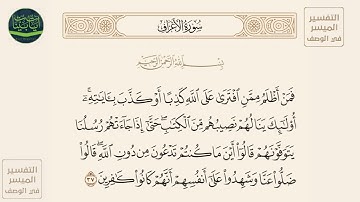 سُورَةُ الأَعْرَافِ
التفسير
الميسر
في الوصف
بِسْمِ ٱللَّهِ ٱلرَّحْمَٰنِ ٱلرَّحِيمِ
فَمَنْ أَظْلَمُ مِمَّنِ ٱفْتَرَىٰ عَلَى ٱللَّهِ كَذِبًا أَوْ كَذَّبَ بِـَٔايَٰتِهِۦٓ ۚ
أُو۟لَٰٓئِكَ يَنَالُهُمْ نَصِيبُهُم مِّنَ ٱلْكِتَٰبِ ۖ حَتَّىٰٓ إِذَا جَآءَتْهُمْ رُسُلُنَا
يَتَوَفَّوْنَهُمْ قَالُوٓا۟ أَيْنَ مَا كُنتُمْ تَدْعُونَ مِن دُونِ ٱللَّهِ ۖ قَالُوا۟
ضَلُّوا۟ عَنَّا وَشَهِدُوا۟ عَلَىٰٓ أَنفُسِهِمْ أَنَّهُمْ كَانُوا۟ كَٰفِرِينَ ٣٧
التفسير
الميسر
في الوصف